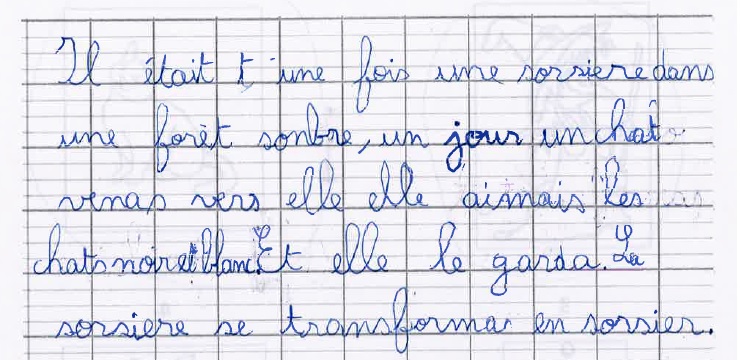 Il était t'une fois une sorsiere dans
une forêt sonbre, un jour un chat
venas vers elle elle aimais les
chats noir et blanc. Et elle le garda. La
sorsiere se transforma en sorsier.